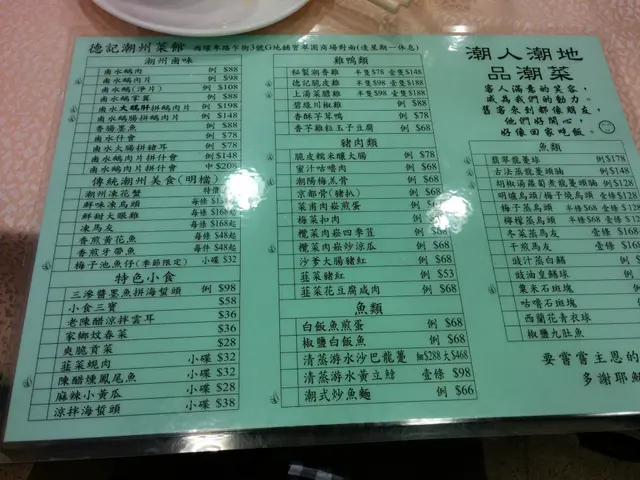 德記潮州菜館 西環卑路乍街3號G地舖寶翠園商場對面(逢星期一休息)
潮州鹵味
鹵水鵝肉 例 $88
鹵水鵝肉片 例 $98
鹵水鵝(淨片) 例 $108
鹵水鵝掌翼 例 $88
鹵水大鵝肝拼鵝肉片 例 $198
鹵水鵝腸拼鵝肉片 例 $148
香腸墨魚 例 $88
鹵水什會 例 $78
鹵水大腸拼豬耳 例 $78
鹵水鵝肉片拼什會 例 $148
鹵水鵝肉片拼什會 中 $208
傳統潮州美食(明檔)
潮州凍花蟹 特價
鮮味凍烏頭
鮮甜大眼雞 每條 $168起
凍馬友 每條 $168起
香煎黃花魚 每條 $48起
香煎牙帶魚 每件 $48起
梅子池魚仔(季節限定) 小碟 $32
特色小食
三滲醬墨魚拼海蜇頭 例 $98
小食三寶 $58
老陳醋涼拌雲耳 $36
家鄉炆春菜 $36
爽脆貢菜 $28
韮菜蜆肉 小碟 $32
陳醋燻鳳尾魚 小碟 $32
麻辣小黃瓜 小碟 $28
涼拌海蜇頭 小碟 $38
雞鴨類
秘製潮香雞 半隻$78 壹隻$148
德記脆皮雞 半隻$98 壹隻$188
上湯菜膽雞 半隻$98 壹隻$188
碧綠川椒雞 例 $88
香酥芋茸鴨 例 $78
香芋雞粒玉子豆腐 例 $68
豬肉類
脆皮糯米釀大腸 例 $78
蜜汁咕嚕肉 例 $68
潮陽梅羔骨 例 $68
京都骨(豬扒) 例 $68
菜甫肉崧煎蛋 例 $68
梅菜扣肉 例 $68
欖菜肉崧四季荳 例 $68
欖菜肉崧炒涼瓜 例 $68
沙爹大腸豬紅 例 $68
韮菜豬紅 例 $53
韮菜花豆腐咸肉 例 $68
魚類
白飯魚煎蛋 例 $68
椒鹽白飯魚 例 $68
清蒸游水沙巴龍躉 細$288 大$468
清蒸游水黃立鯧 壹條 $98
潮式炒魚麵 例 $66
潮人潮地
品潮菜
客人滿意的笑容，
成為我們的動力。
舊客來到都像朋友，
他們好開心，
好像回家吃飯。
魚類
翡翠龍躉球 例$178
古法蒸龍躉頭腩 例$148
胡椒浸蘿蔔煮龍躉頭腩 例$128
明爐烏頭/梅子燒烏頭 壹條$128
梅子蒸烏頭 半條$68 壹條$128
檸檬蒸烏頭 半條$68 壹條$128
冬菜蒸馬友 壹條 $168
干煎馬友 壹條
豉汁蒸白鱔 例
豉油皇鱔球 例
粟米石斑塊 例
咕嚕石斑塊
西蘭花青衣球
椒鹽九肚魚
要嘗嘗主恩的
多謝耶穌